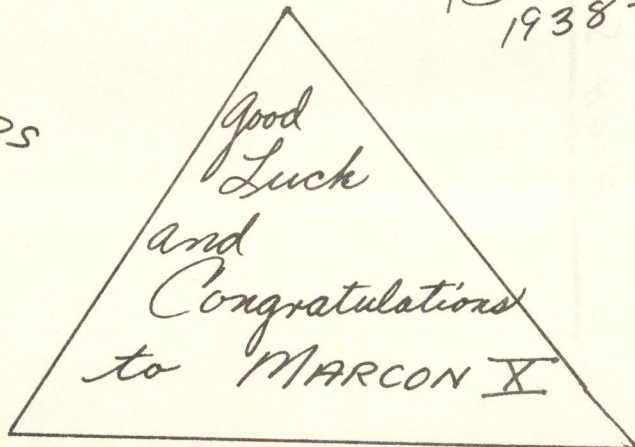 1938-
good
Luck
and
Congratulations
to MARCON X